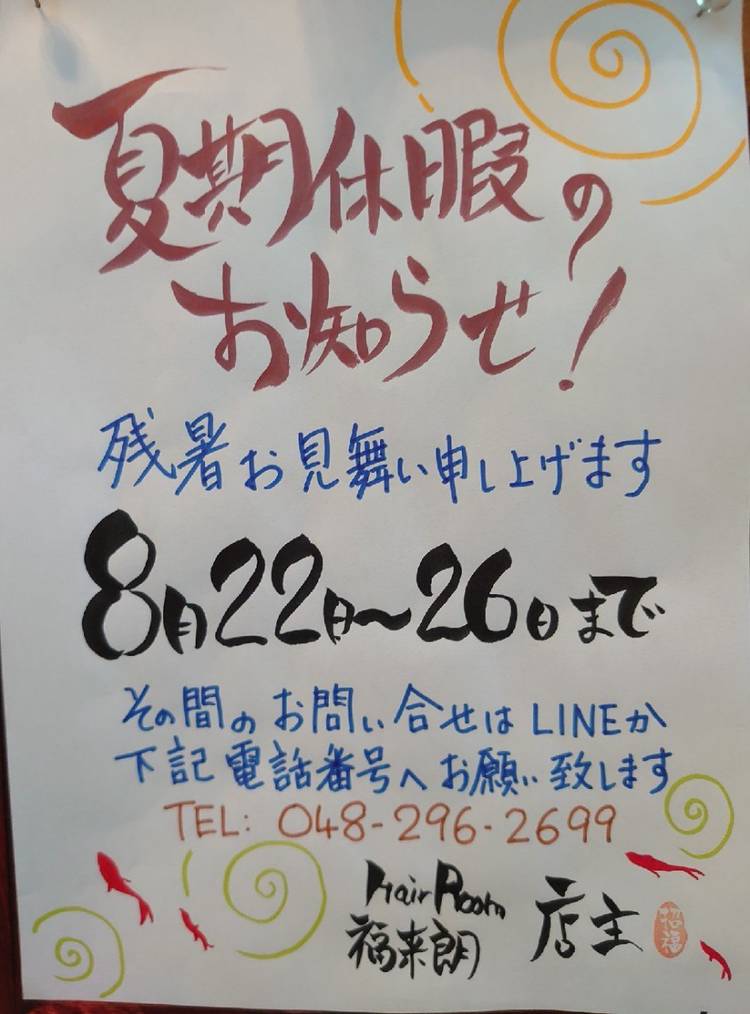 夏期休暇の
お知らせ!
残暑お見舞い申し上げます
8月22日〜26日まで
その間のお問い合せはLINEか
下記電話番号へお願い致します
TEL: 048-296-2699
Hair Room
福来朗 店主
招福